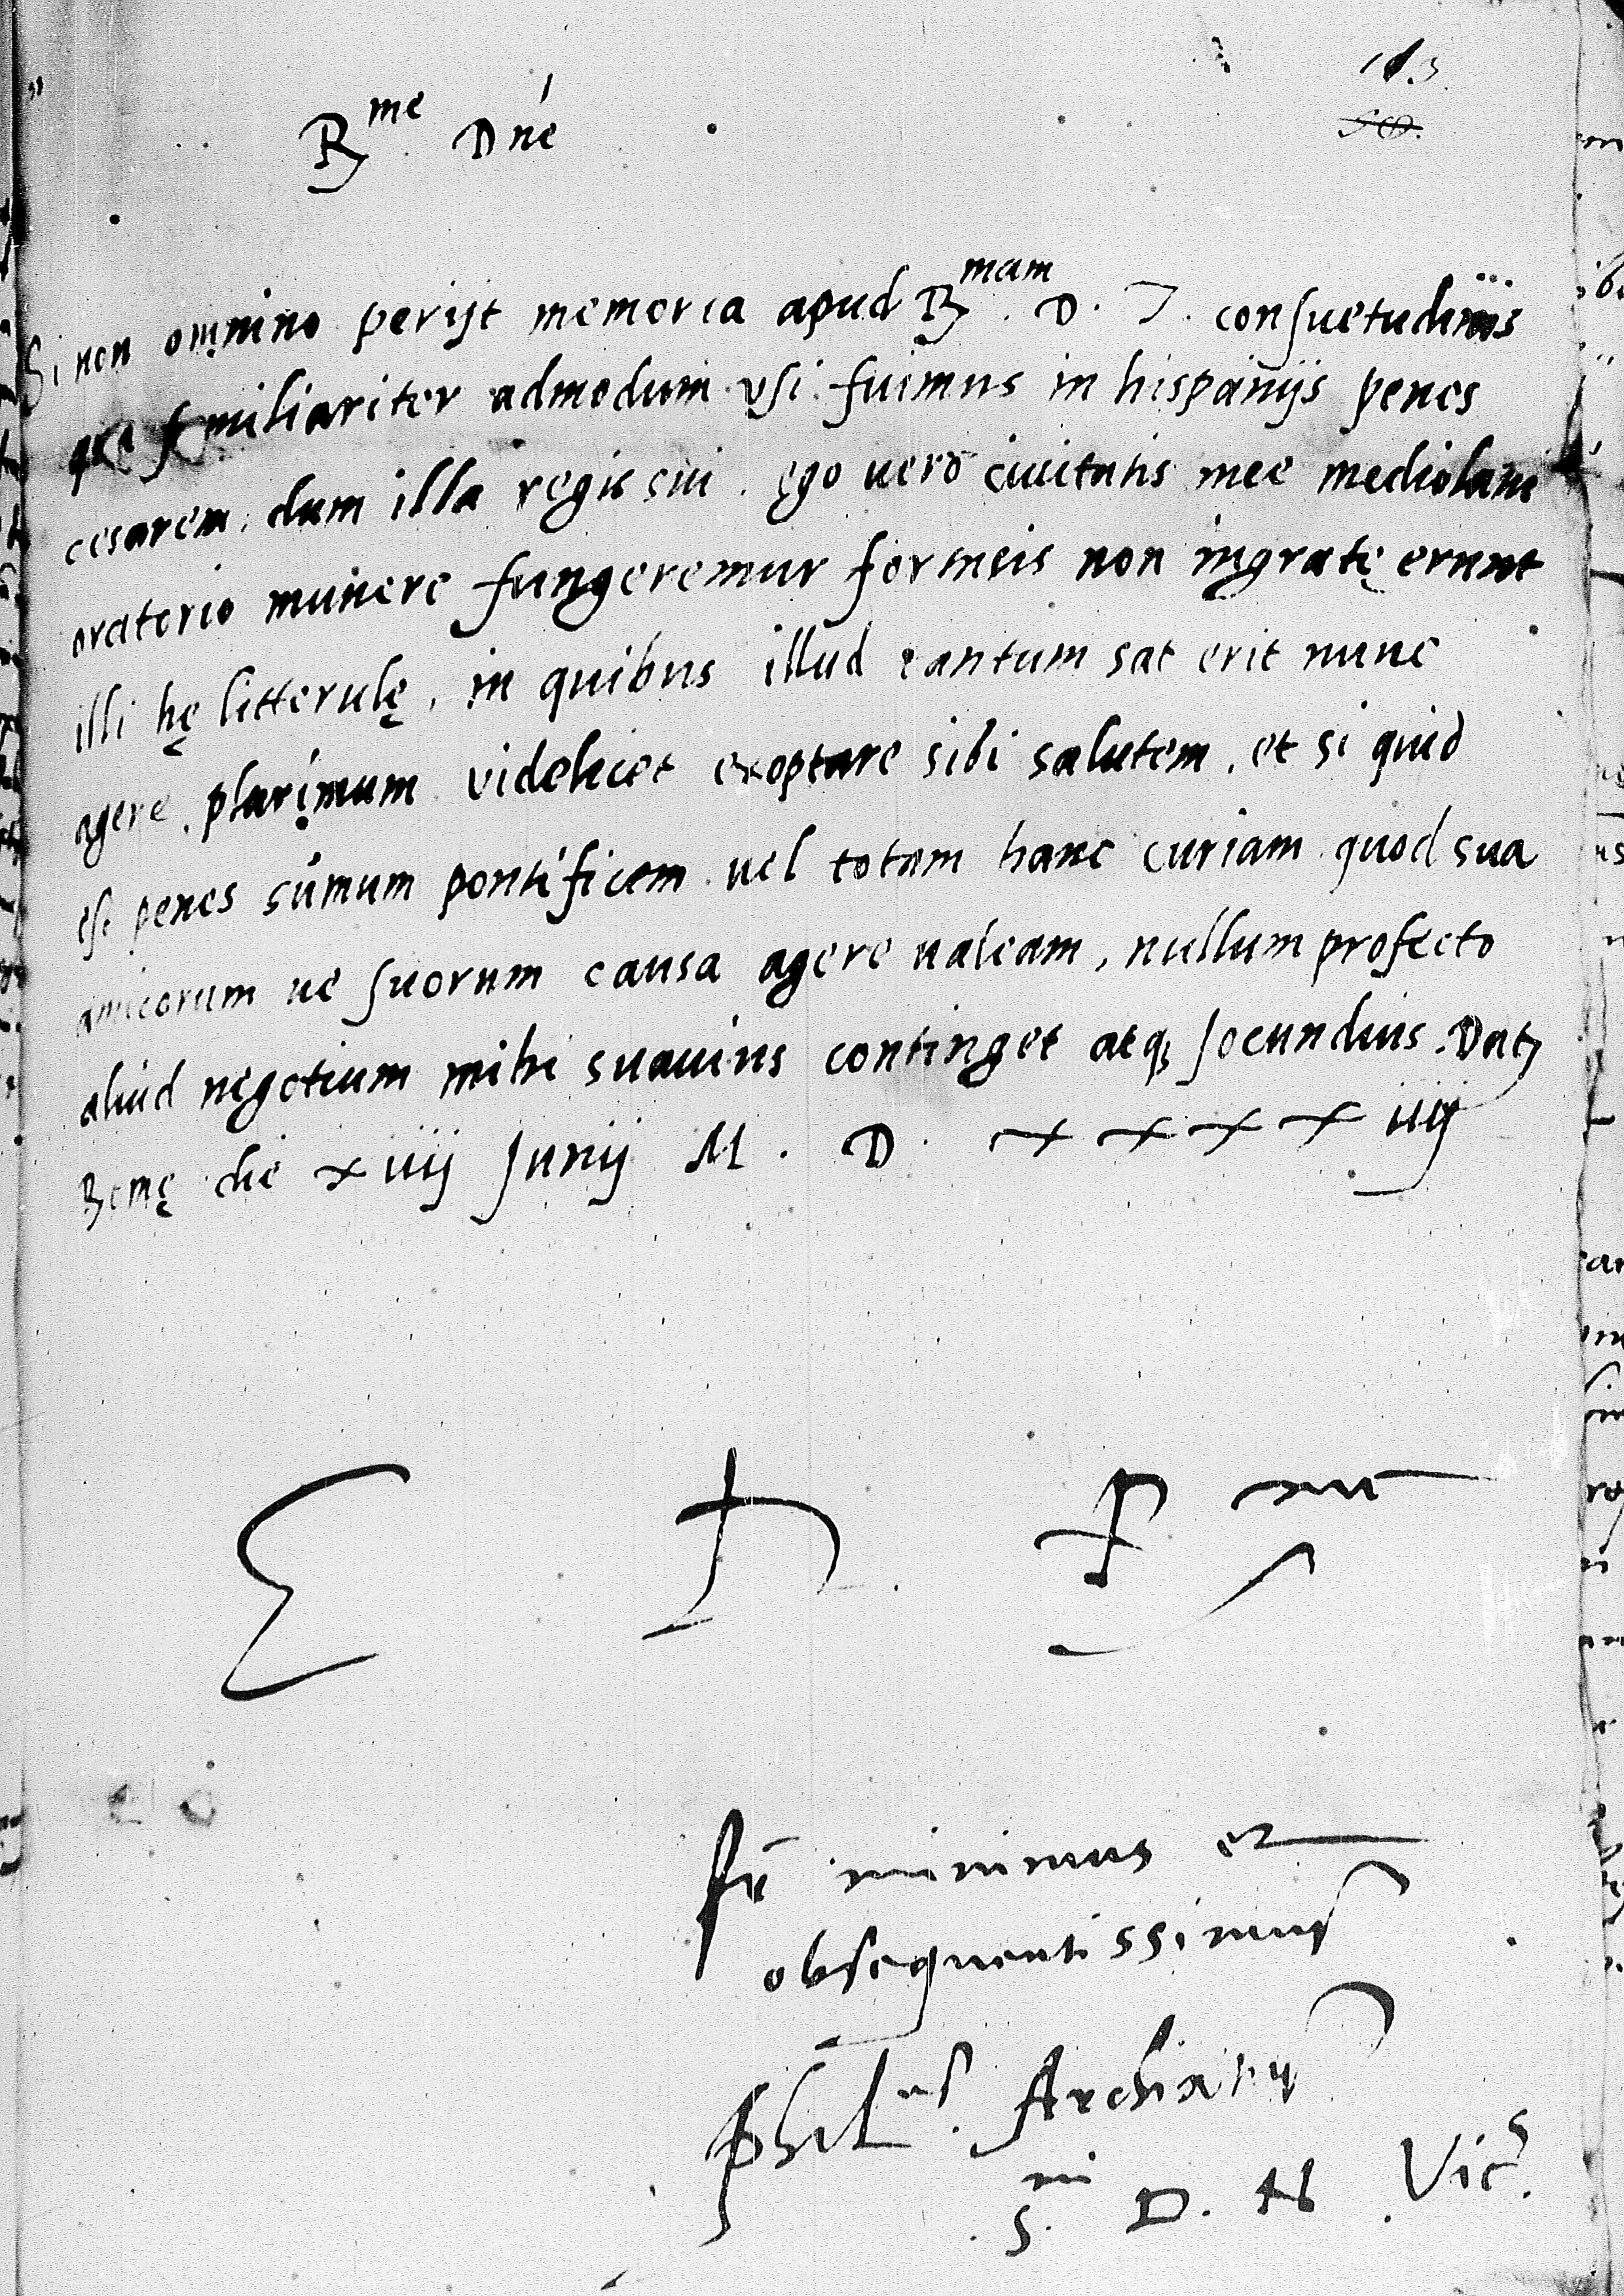 113.
R^me Dne
Si non omnino perijt memoria apud R^mam. D. T. consuetudinis
qua familiariter admodum vsi fuimus in hispanijs penes
cesarem, dum illa regis sui. ego uero ciuitatis mee mediolani
oratorio munere fungeremur forsitsis non ingratę erunt
illi hę litterulę, in quibus illud tantum sat erit nunc
agere. plurimum videlicet exoptare sibi salutem, et si quid
est penes sumum pontificem uel totam hanc curiam quod sua
amicorum ue suorum causa agere ualeam, nullum profecto
aliud negotium mihi suauius continget atq; Jocundius. Dat
Romę die xiiij Junij M. D. xxxxiiij
E. D. R.
minimus et
obsequentissimus
Phil^us. Archintus
S^mi D. N. Vic^s.